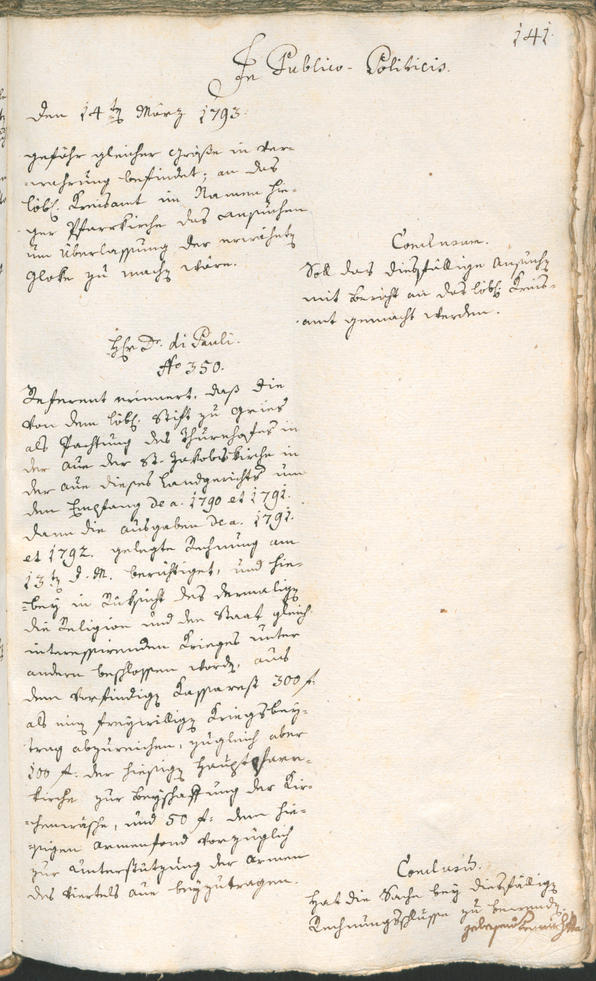 141.
In Publico-Politicis.
Den 14ten März 1793.
gefähr gleicher Größe in Ver-
wahrung befindet; an das
löbl. Kreisamt im Namen hie-
ger Pfarrkirche das Ansuchen
um Überlassung der erwähnten
Gloke zu machen wäre.
Conclusum.
Soll das dießfällige Ansuchen
mit Bericht an das löbl. Kreis-
amt gemacht werden.
Hr. Dr. di Pauli.
No 350.
Referent erinnert, daß die
von dem löbl. Stift zu Gries
als Pachtung des Thurnhofes in
der Aue der St. Jakobskirche in
der Aue dieses Landgerichts um
den Empfang de a. 1790 et 1791.
dann die Ausgaben de a. 1791.
et 1792. gelegte Rechnung am
13ten d. M. berichtiget, und hie-
bey in Rüksicht des dermaligen
die Religion und den Staat gleich
interessirenden Krieges unter
andern beschlossen worden, aus
dem vorfindigen Kassarest 300 f.
als einen freywilligen Kriegsbey-
trag abzureichen, zugleich aber
100 f. der hiesigen Hauptpfarr-
kirche zur Beyschaffung der Kir-
chenwäsche, und 50 f. dem hie-
sigen Armenfond vorzüglich
zur Unterstützung der Armen
des Viertels Aue beyzutragen.
Conclusum.
Hat die Sache bey dießfälligen
Rechnungsschlusse zu bewenden.